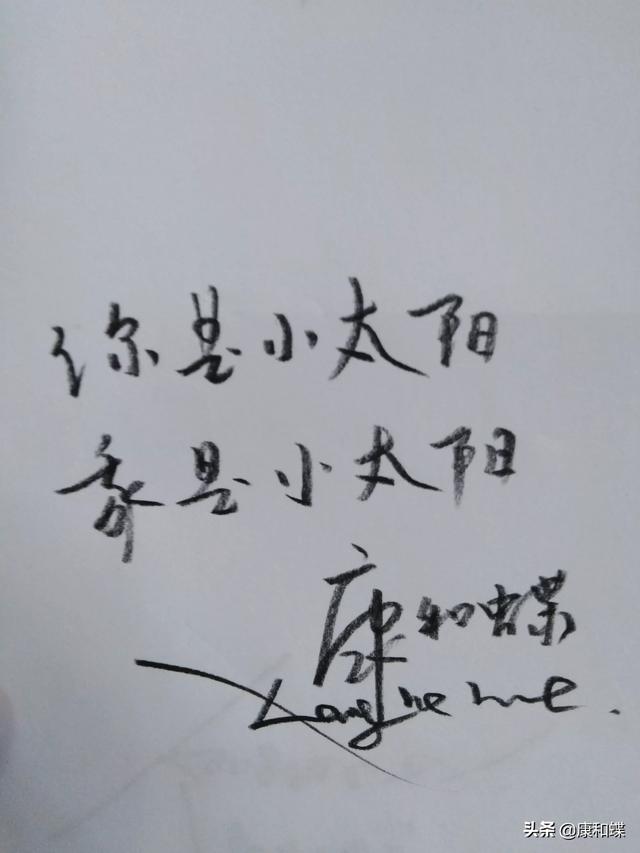 你是小太阳
是小太阳
康和蝶
头条 @康和蝶